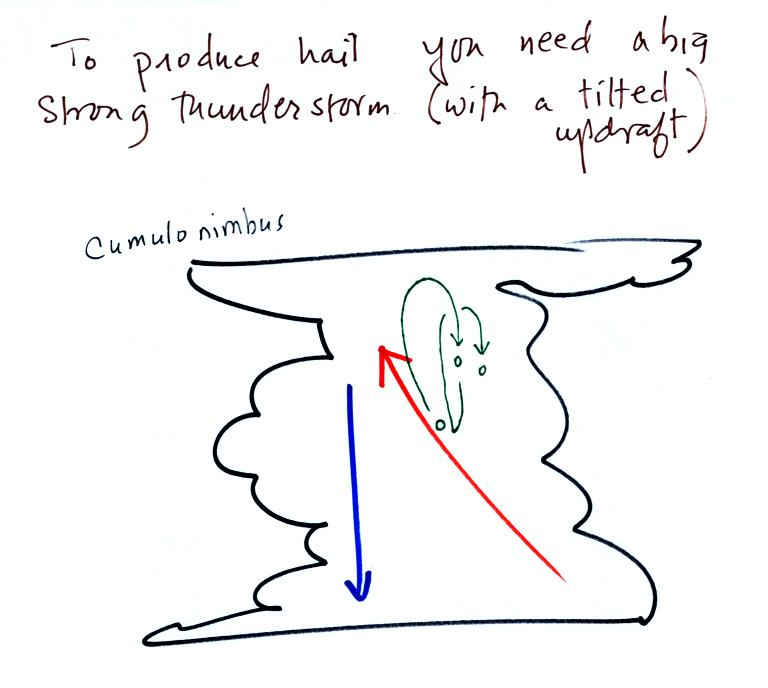 To produce hail you need a big
strong thunderstorm (with a tilted
updraft)
Cumulonimbus